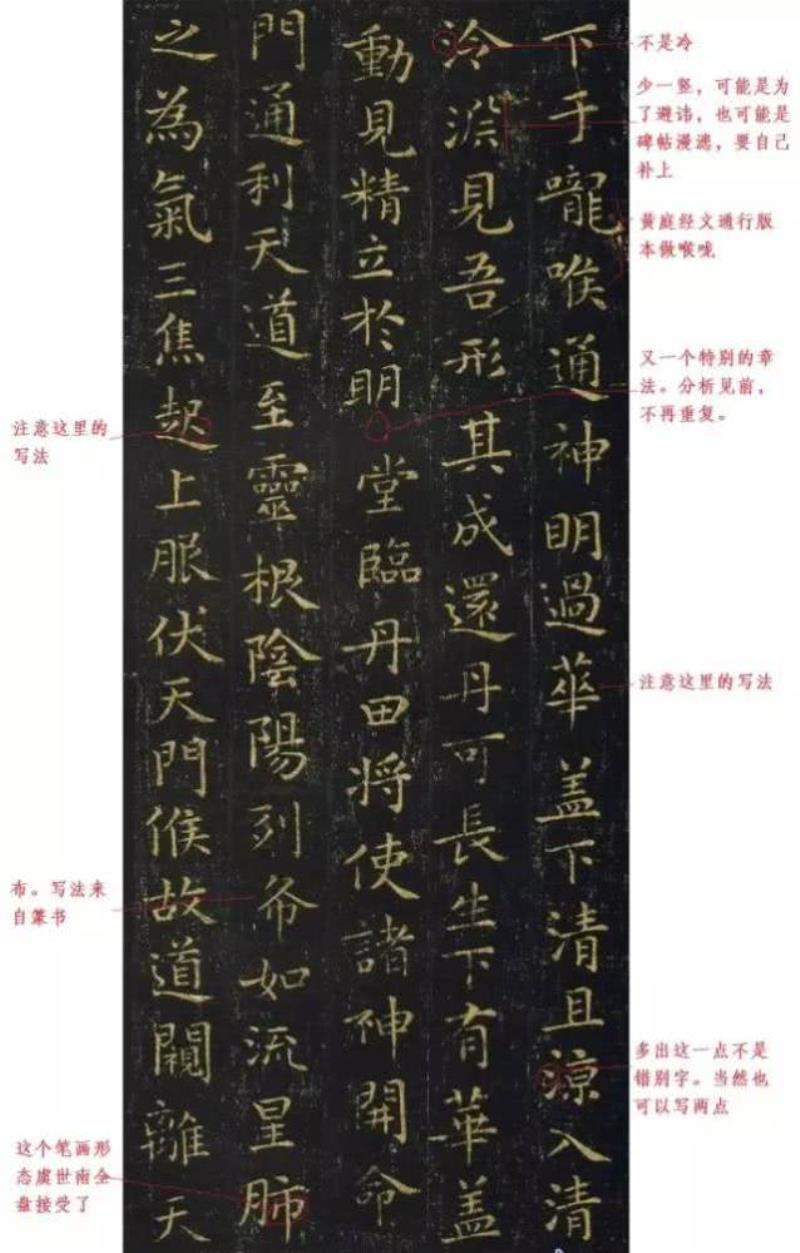 下手嚨喉通神明過華盖下清且凉入清
泠渊見吾形其成還丹可長生下有華盖
動見精立於明堂臨丹田将使諸神開命
門通利天道至靈根陰陽列布如流星肺
之為氣三焦起上服伏天門候故道闚離天
不是冷
少一竖，可能是为
了避讳，也可能是
碑帖漫漶，要自己
补上
黄庭经文通行版
本做喉咙
又一个特别的章
法。分析见前，
不再重复。
注意这里的写法
多出这一点不是
错别字。当然也
可以写两点
注意这里的
写法
布。写法来
自篆书
这个笔画形
态虞世南全
盘接受了